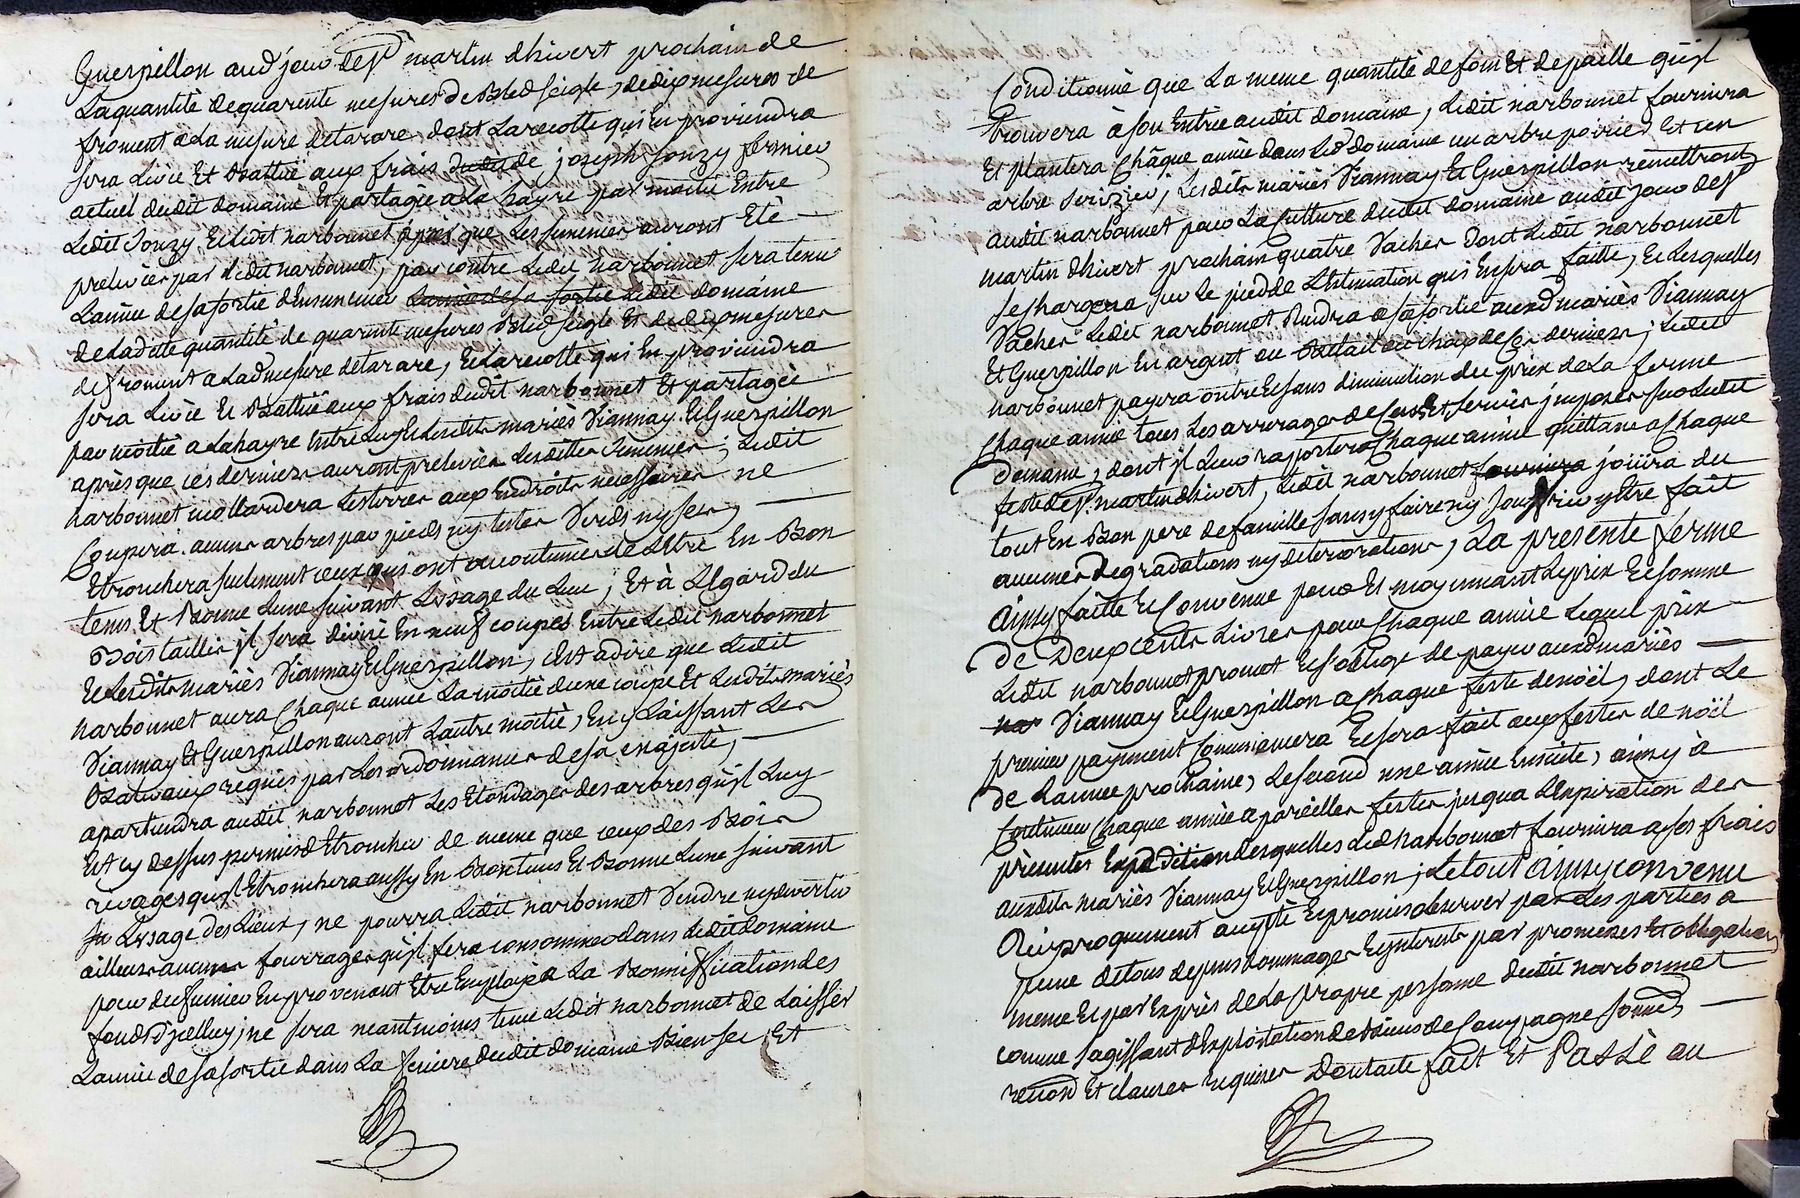 Guerpillon aud jour de st martin dhivert prochain de
La quantité de quarente mesures de Bled seigle, de dix mesures de
froment a La mesure de tarare, dont La recolte qui En proviendra
sera Liviée Et Battue aux frais dudit de joseph jonzy fermier
actuel dudit domaine Et partagée a La hayre par moitié Entre
Ledit Jonzy Et Ledit narbonnet après que Les semences auront Eté
prelevées par Ledit narbonnet, par contre Ledit narbonnet sera tenu
Lannée de sa sortie d'ensemencer Lannée de sa sortie Ledit domaine
de Ladite quantité de quarente mesures Bled seigle Et de dix mesures
de froment a Lad mesure de tarare, Et La recolte qui En proviendra
sera Liviée Et Battue aux frais dudit narbonnet Et partagée
par moitié a La hayre Entre Luy Et Lesdits mariés Viannay Et Guerpillon
après que ces derniers auront prelevées Lesdittes semences; Ledit
narbonnet Les terres aux Endroits necessaires ne
Coupera aucuns arbres par pieds ny testes Verds ny secs,
Etronchera seulement ceux qui ont accoutumés de L'être En Bon
tems Et Bonne Lune suivant L'usage du Lieu; Et à L'Egard du
Bois taillis jl sera divisé En neuf coupes Entre Ledit narbonnet
Et Lesdits mariés Viannay Et Guerpillon, c'est a dire que Ledit
narbonnet aura Chaque année La moitié d'une coupe Et Lesdits mariés
Viannay Et Guerpillon auront L'autre moitié, En y Laissant Les
Balivaux requis par Les ordonnances de sa majesté,
apartiendra audit narbonnet Les Etondages des arbres qu'jl Luy
Est cy dessus permis d'Etroncher de meme que ceux des Bois
rivages qu'jl Etronchera aussy En Bon tems Et Bonne Lune suivant
L'usage des Lieux, ne pourra Ledit narbonnet Vendre ny divertir
ailleurs aucuns fourrages qu'jl fera consommer dans Ledit domaine
pour du fumier En provenant Etre Employé a La Bonnification des
fonds d'jcelluy, ne sera neantmoins tenu Ledit narbonnet de Laisser
Lannée de sa sortie dans La feniere dudit domaine Bien sec Et
Conditionné que La meme quantité de foin Et de paille qu'jl
trouvera à son Entrée audit domaine, Ledit narbonnet fournira
Et plantera Châque année dans Led domaine un arbre poirier Et un
arbre serizier; Lesdits mariés Viannay Et Guerpillon remettront
audit narbonnet pour La Culture dudit domaine audit jour de st
martin dhivert prochain quatre Vaches dont Ledit narbonnet
se chargera sur Le pied de L'Estimation qui En sera faitte, Et Lesquelles
Vaches Ledit narbonnet Rendra a sa sortie auxd mariés Viannay
Et Guerpillon En argent ou Betail au choix de Ces derniers; Ledit
narbonnet payera outre Et sans diminution du prix de La ferme
Chaque année tous Les arrerages de Cens Et servis jmposés sur Ledit
domaine, dont jl Leur raportera Chaque année quittance a Chaque
feste de st martin dhivert, Ledit narbonnet fournira joüira du
tout En Bon pere de famille sans y faire ny souffrir y Etre fait
aucunes degradations ny deteriorations, La presente ferme
ainsy faitte Et Convenue pour Et moyennant Le prix Et somme
de Deux cents Livres pour Chaque année Lequel prix
Ledit narbonnet promet Et s'oblige de payer auxd mariés
nar Viannay Et Guerpillon a Chaque feste de noël, dont Le
premier payment Commencera Et sera fait aux festes de noël
de Lannee prochaine, Le second une année Ensuite, ainsy à
Continuer Chaque année a pareilles festes jusqua L'Expiration des
presentes Expedition desquelles Led narbonnet fournira a ses frais
auxdits mariés Viannay Et Guerpillon; Le tout ainsy convenu
Reciproquement accepté Et promis observer par Les parties a
peine de tous depens dommages Et jnterets par promesses Et obligations
meme Et par Exprès de La propre personne dudit narbonnet
comme s'agissant d'Exploitation de Biens de Campagne soumis
renon Et clauses requises Dont acte fait Et Passè au